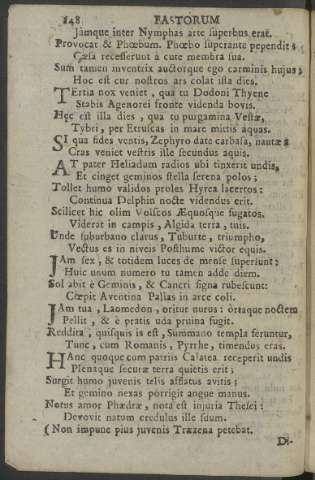 148 FASTORUM
Jàmque inter Nymphas arte superbus erat.
Provocat & Phœbum. Phœbo superante pependit:
Cæsa recesserunt à cute membra sua.
Sum tamen inventrix auctorque ego carminis hujus;
Hoc est cur nostros ars colat ista dies.
Tertia nox veniet, qua tu Dodoni Thyene
Stabis Agenorei fronte videnda bovis.
Hęc est illa dies, qua tu purgamina Vestæ,
Tybri, per Etruscas in mare mittis aquas.
Si qua fides ventis, Zephyro date carbasa, nautæ:
Cras veniet vestris ille secundus aquis.
At pater Heliadum radios ubi tinxerit undis,
Et cinget geminos stella serena polos;
Tollet humo validos proles Hyrea lacertos:
Continua Delphin nocte videndus erit.
Scilicet hic olim Volscos Æquosque fugatos,
Viderat in campis, Algida terra, tuis.
Unde suburbano clarus, Tuburte, triumpho,
Vectus es in niveis Posthume victor equis.
Jam sex, & totidem luces de mense supersunt:
Huic unum numero tu tamen adde diem.
Sol abit è Geminis, & Cancri signa rubescunt:
Cœpit Aventina Pallas in arce coli.
Jam tua, Laomedon, oritur nurus: òrtaque noctem
Pellit, & è pratis uda pruina fugit.
Reddita, quisquis is est, Summano templa feruntur,
Tunc, cum Romanis, Pyrrhe, timendus eras.
Hanc quoque cum patriis Galatea receperit undis
Plenaque securæ terra quietis erit;
Surgit humo juvenis telis afflatus avitis;
Et gemino nexas porrigit angue manus.
Notus amor Phædræ, nota est injuria Thesei:
Devovit natum credulus ille suum.
(Non impune pius juvenis Trœzena petebat.
Di-